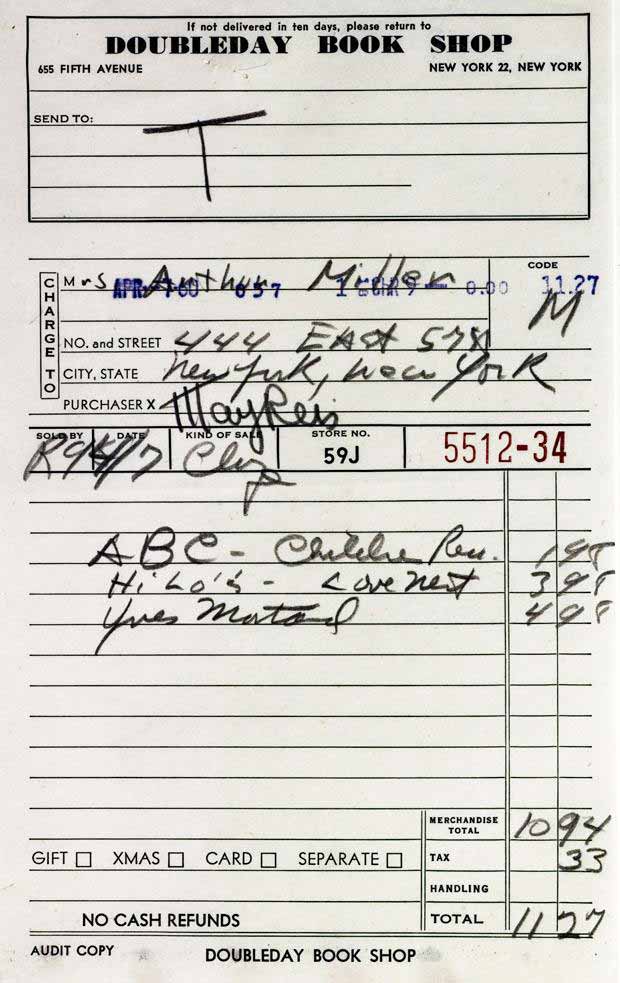 If not delivered in ten days, please return to
DOUBLEDAY BOOK SHOP
655 FIFTH AVENUE NEW YORK 22, NEW YORK
SEND TO:
T
CHARGE TO
CODE
Mrs Arthur Miller
APR -7 60 057 0.00 11.27
M
NO. and STREET 444 EAST 57
CITY, STATE New York, New York
PURCHASER X May Reis
SOLD BY DATE KIND OF SALE STORE NO.
4/7 Chg 59J 5512-34
ABC - 198
Hi Lo's - Love Nest 398
Yves Montand 498
MERCHANDISE TOTAL 10 94
GIFT XMAS CARD SEPARATE TAX 33
HANDLING
NO CASH REFUNDS TOTAL 11 27
AUDIT COPY DOUBLEDAY BOOK SHOP